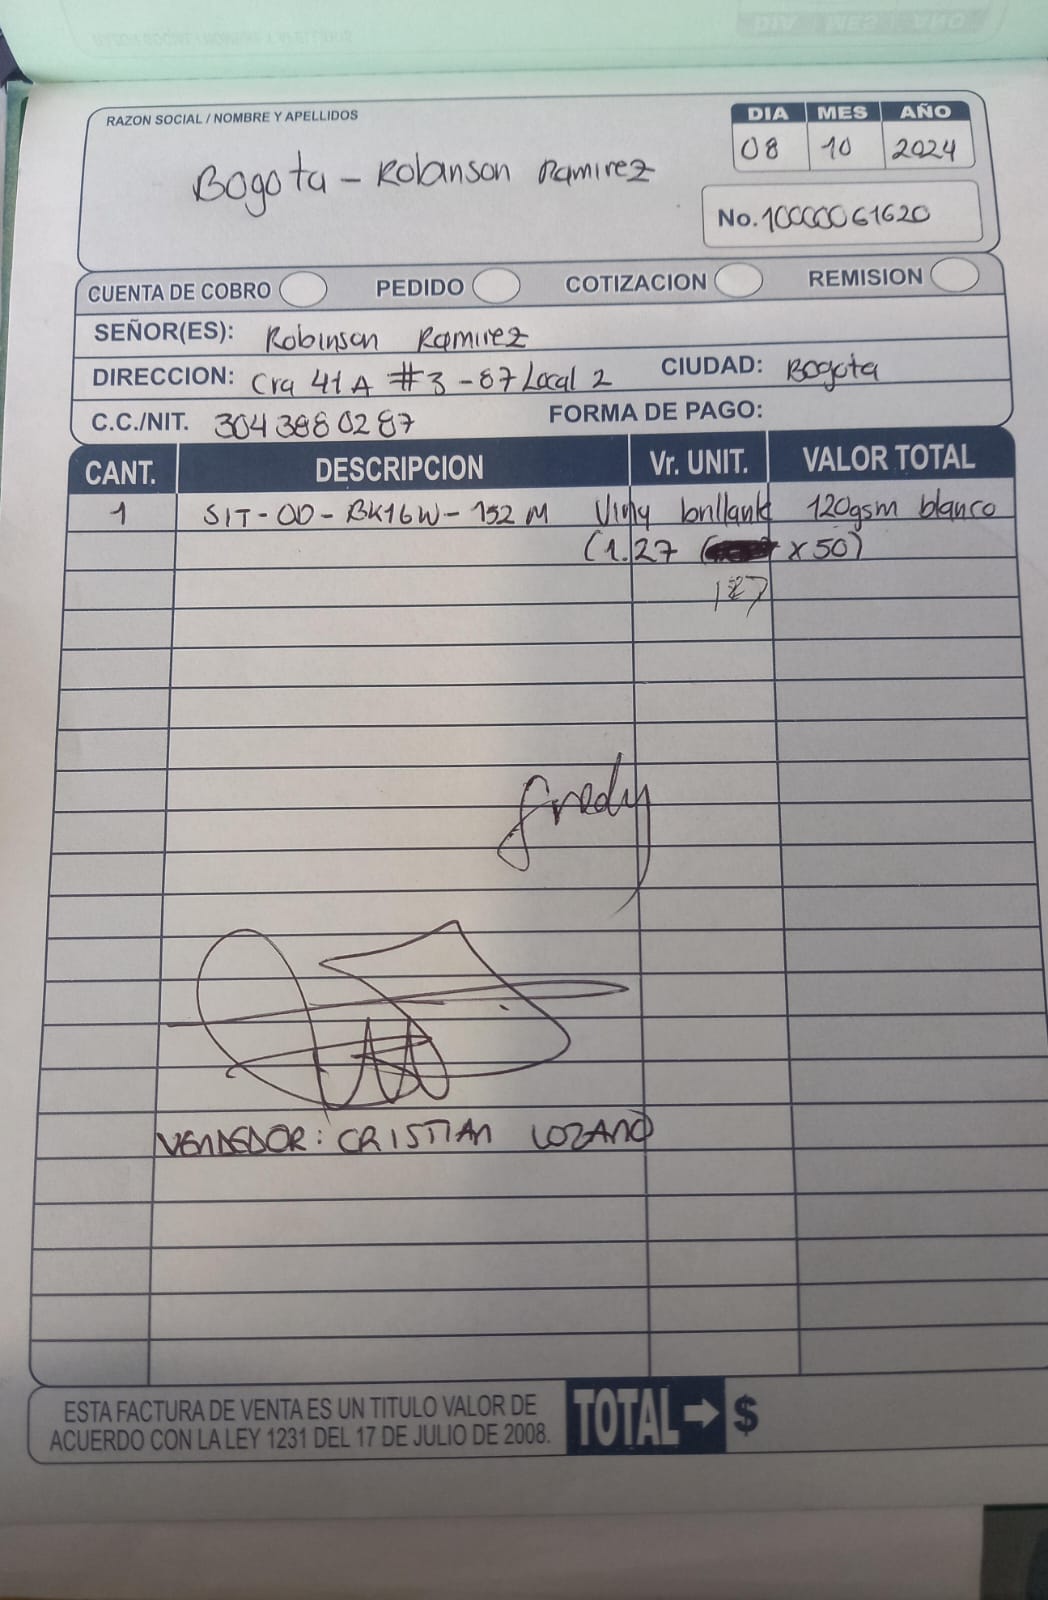 RAZON SOCIAL / NOMBRE Y APELLIDOS
DIA MES AÑO
08 10 2024
Bogota - Robanson Ramirez
No. 10000061620
CUENTA DE COBRO PEDIDO COTIZACION REMISION
SEÑOR(ES): Robinson Ramirez
DIRECCION: Cra 41 A #3 - 87 Local 2 CIUDAD: Bogota
C.C./NIT. 3043880287 FORMA DE PAGO:
CANT. DESCRIPCION Vr. UNIT. VALOR TOTAL
1 SIT - OD - BK16W - 152 M Viny brillant 120gsm blanco
(1.27 x 50)
127
fredy
VENDEDOR: CRISTIAN LOZANO
ESTA FACTURA DE VENTA ES UN TITULO VALOR DE
ACUERDO CON LA LEY 1231 DEL 17 DE JULIO DE 2008.
TOTAL $